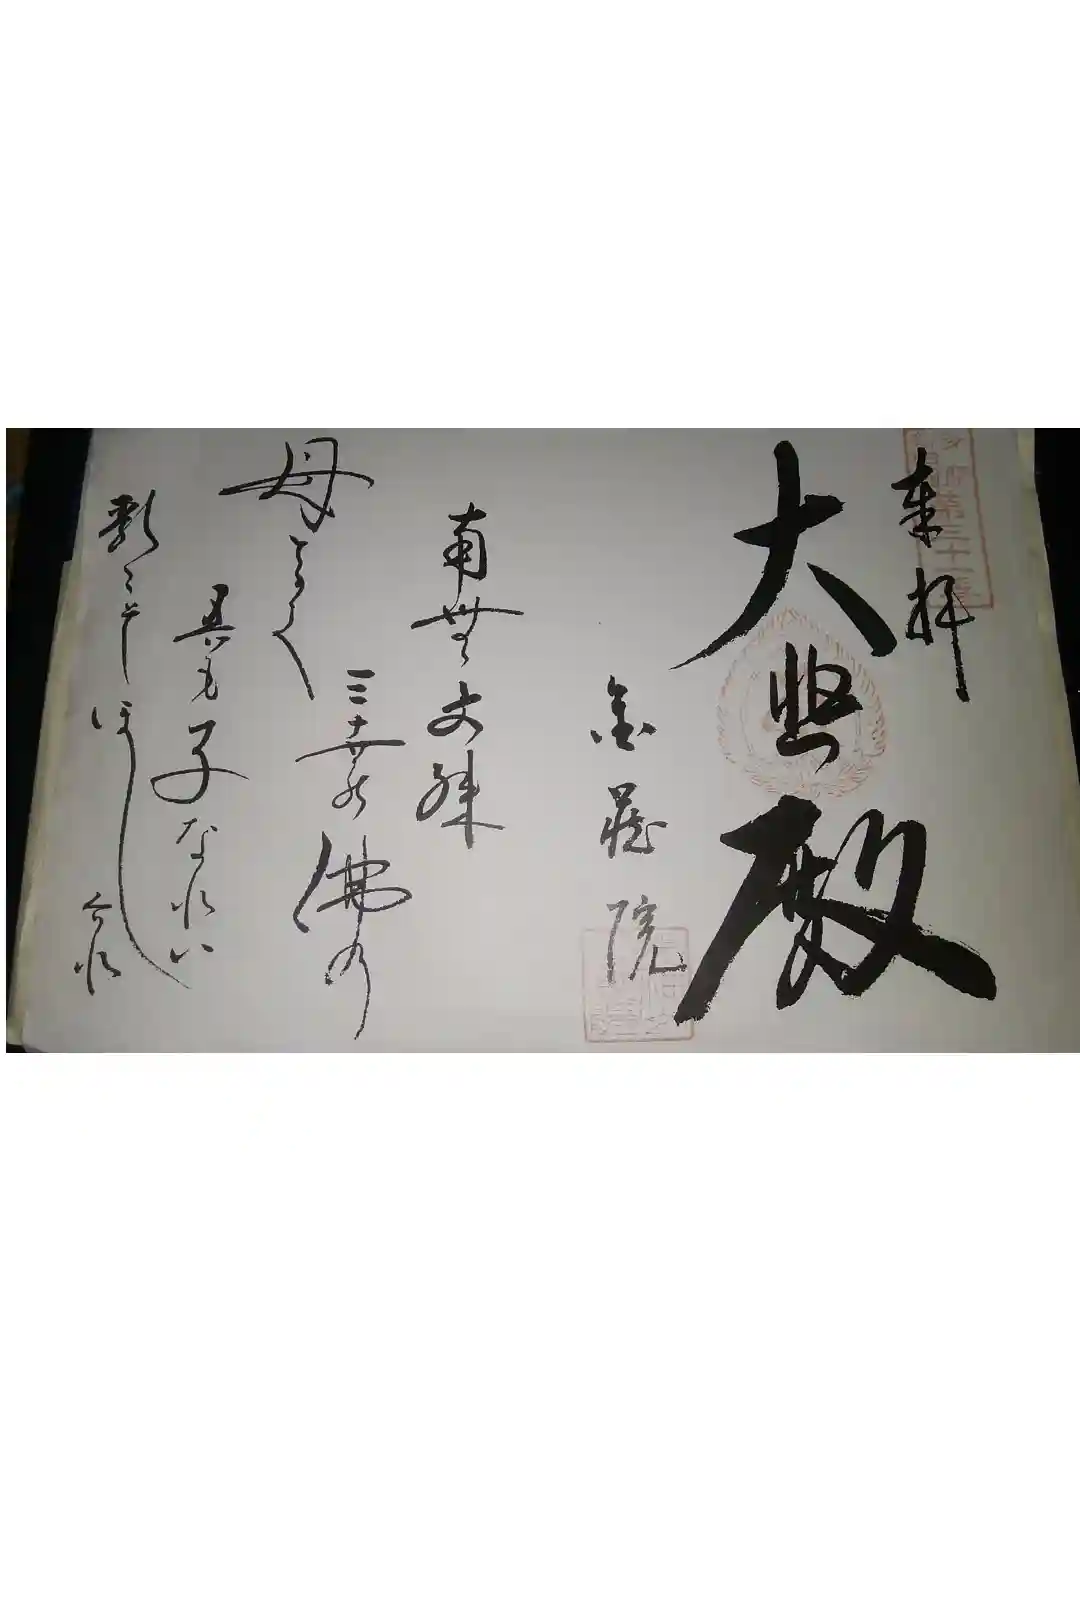 奉拝
大悲殿
金蔵院
南無文殊
三世の佛の
母ときく
吾も子なれば
乳こそほし
けれ